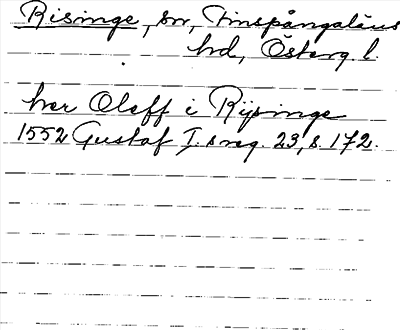 Risinge, sn, Finspångaläns
hd, Österg. l.
her Oleff i Rijsinge
1552 Gustaf I:s reg. 23, s. 172.